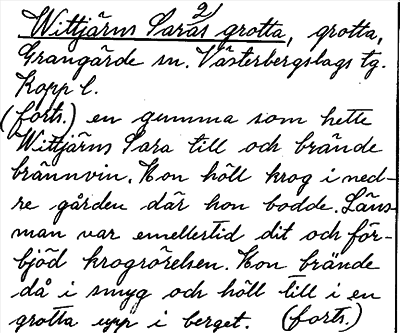 2)
Wittjärns Saras grotta, grotta,
Grangärde sn. Västerbergslags tg.
Kopp. l.
(forts.) en gumma som hette
Wittjärns Sara till och brände
brännvin. Hon höll krog i ned-
re gården där hon bodde. Läns-
man var emellertid dit och för-
bjöd krogrörelsen. Hon brände
då i smyg och höll till i en
grotta upp i berget. (forts.)